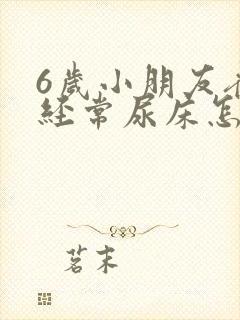 6岁小朋友
经常尿床怎
茗末